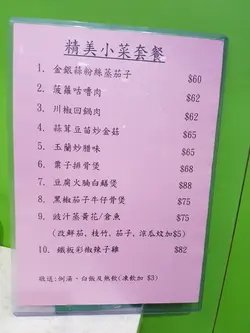 精美小菜套餐
1. 金銀蒜粉絲蒸茄子 $60
2. 菠蘿咕嚕肉 $62
3. 川椒回鍋肉 $62
4. 蒜茸豆苗炒金菇 $65
5. 玉蘭炒腊味 $65
6. 栗子排骨煲 $68
7. 豆腐火腩白鱔煲 $88
8. 黑椒茄子牛仔骨煲 $75
9. 豉汁蒸黃花/倉魚 $75
(改鮮茄, 枝竹, 茄子, 涼瓜炆加$5)
10. 鐵板彩椒辣子雞 $82
敬送: 例湯、白飯及熱飲(凍飲加 $3)